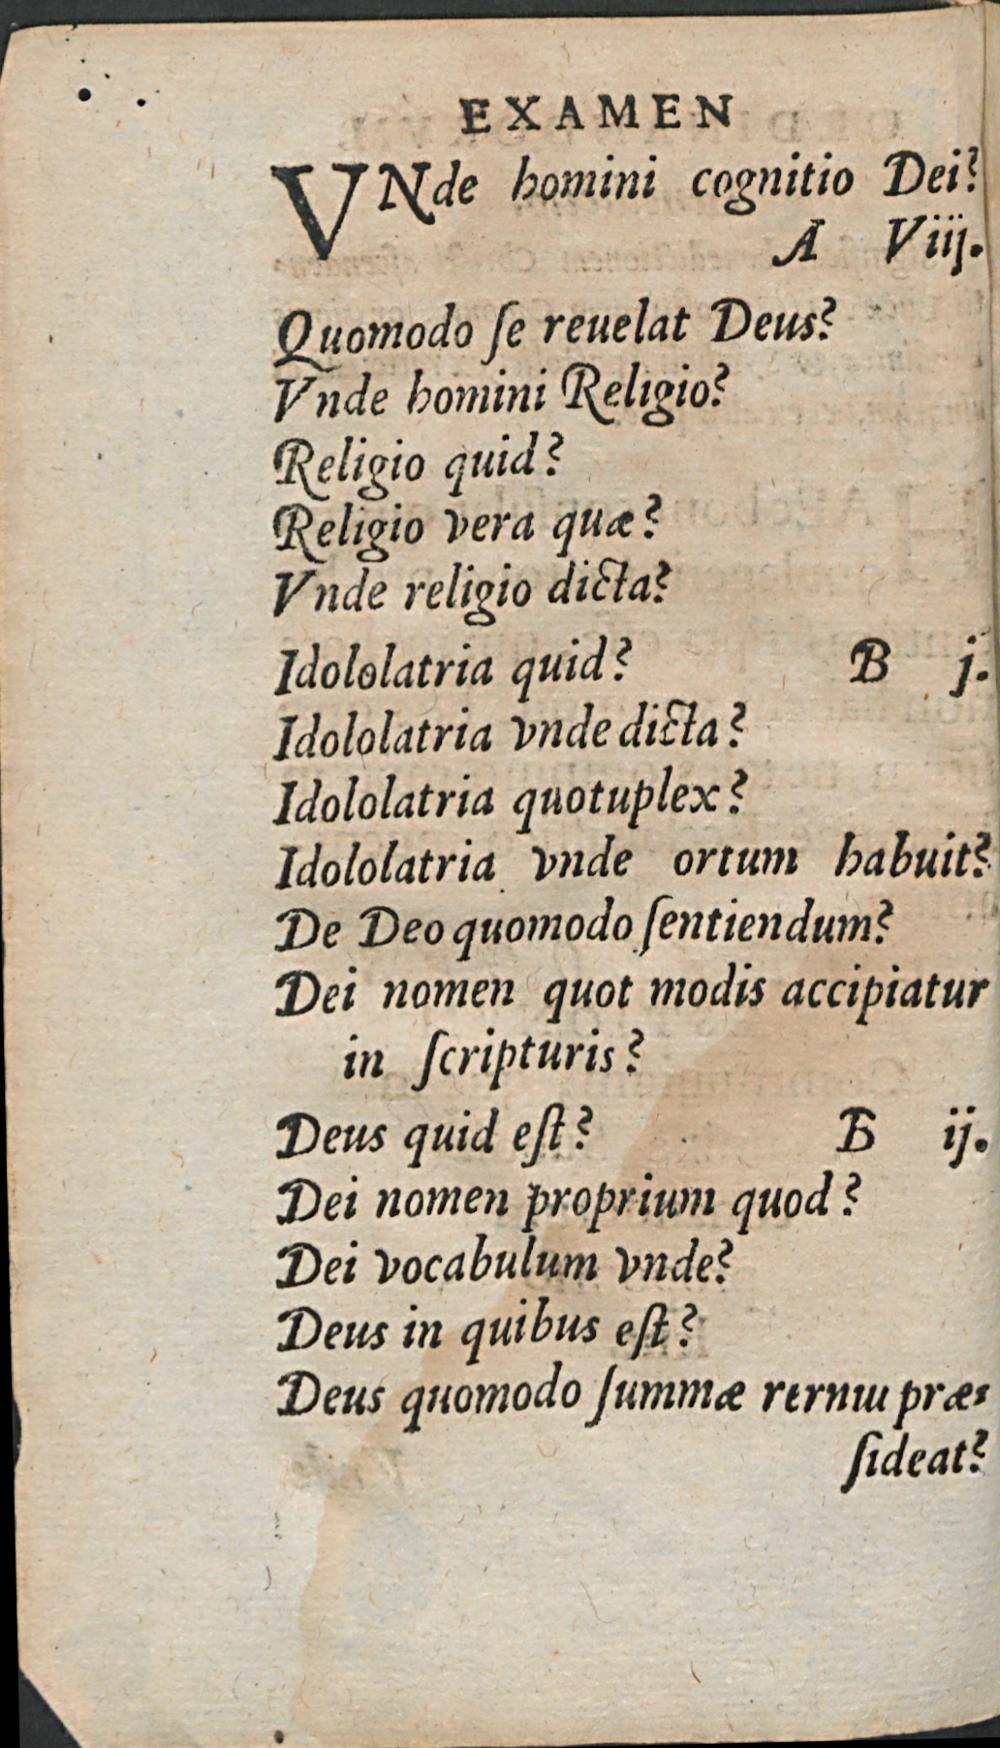 EXAMEN
VNde homini cognitio Dei?
A Viij.
Quomodo ſe reuelat Deus?
Vnde homini Religio?
Religio quid?
Religio vera quæ?
Vnde religio dicta?
Idololatria quid? B j.
Idololatria vnde dicta?
Idololatria quotuplex?
Idololatria vnde ortum habuit?
De Deo quomodo ſentiendum?
Dei nomen quot modis accipiatur
in ſcripturis?
Deus quid eſt? B ij.
Dei nomen proprium quod?
Dei vocabulum vnde?
Deus in quibus eſt?
Deus quomodo ſummæ præ-
ſideat?